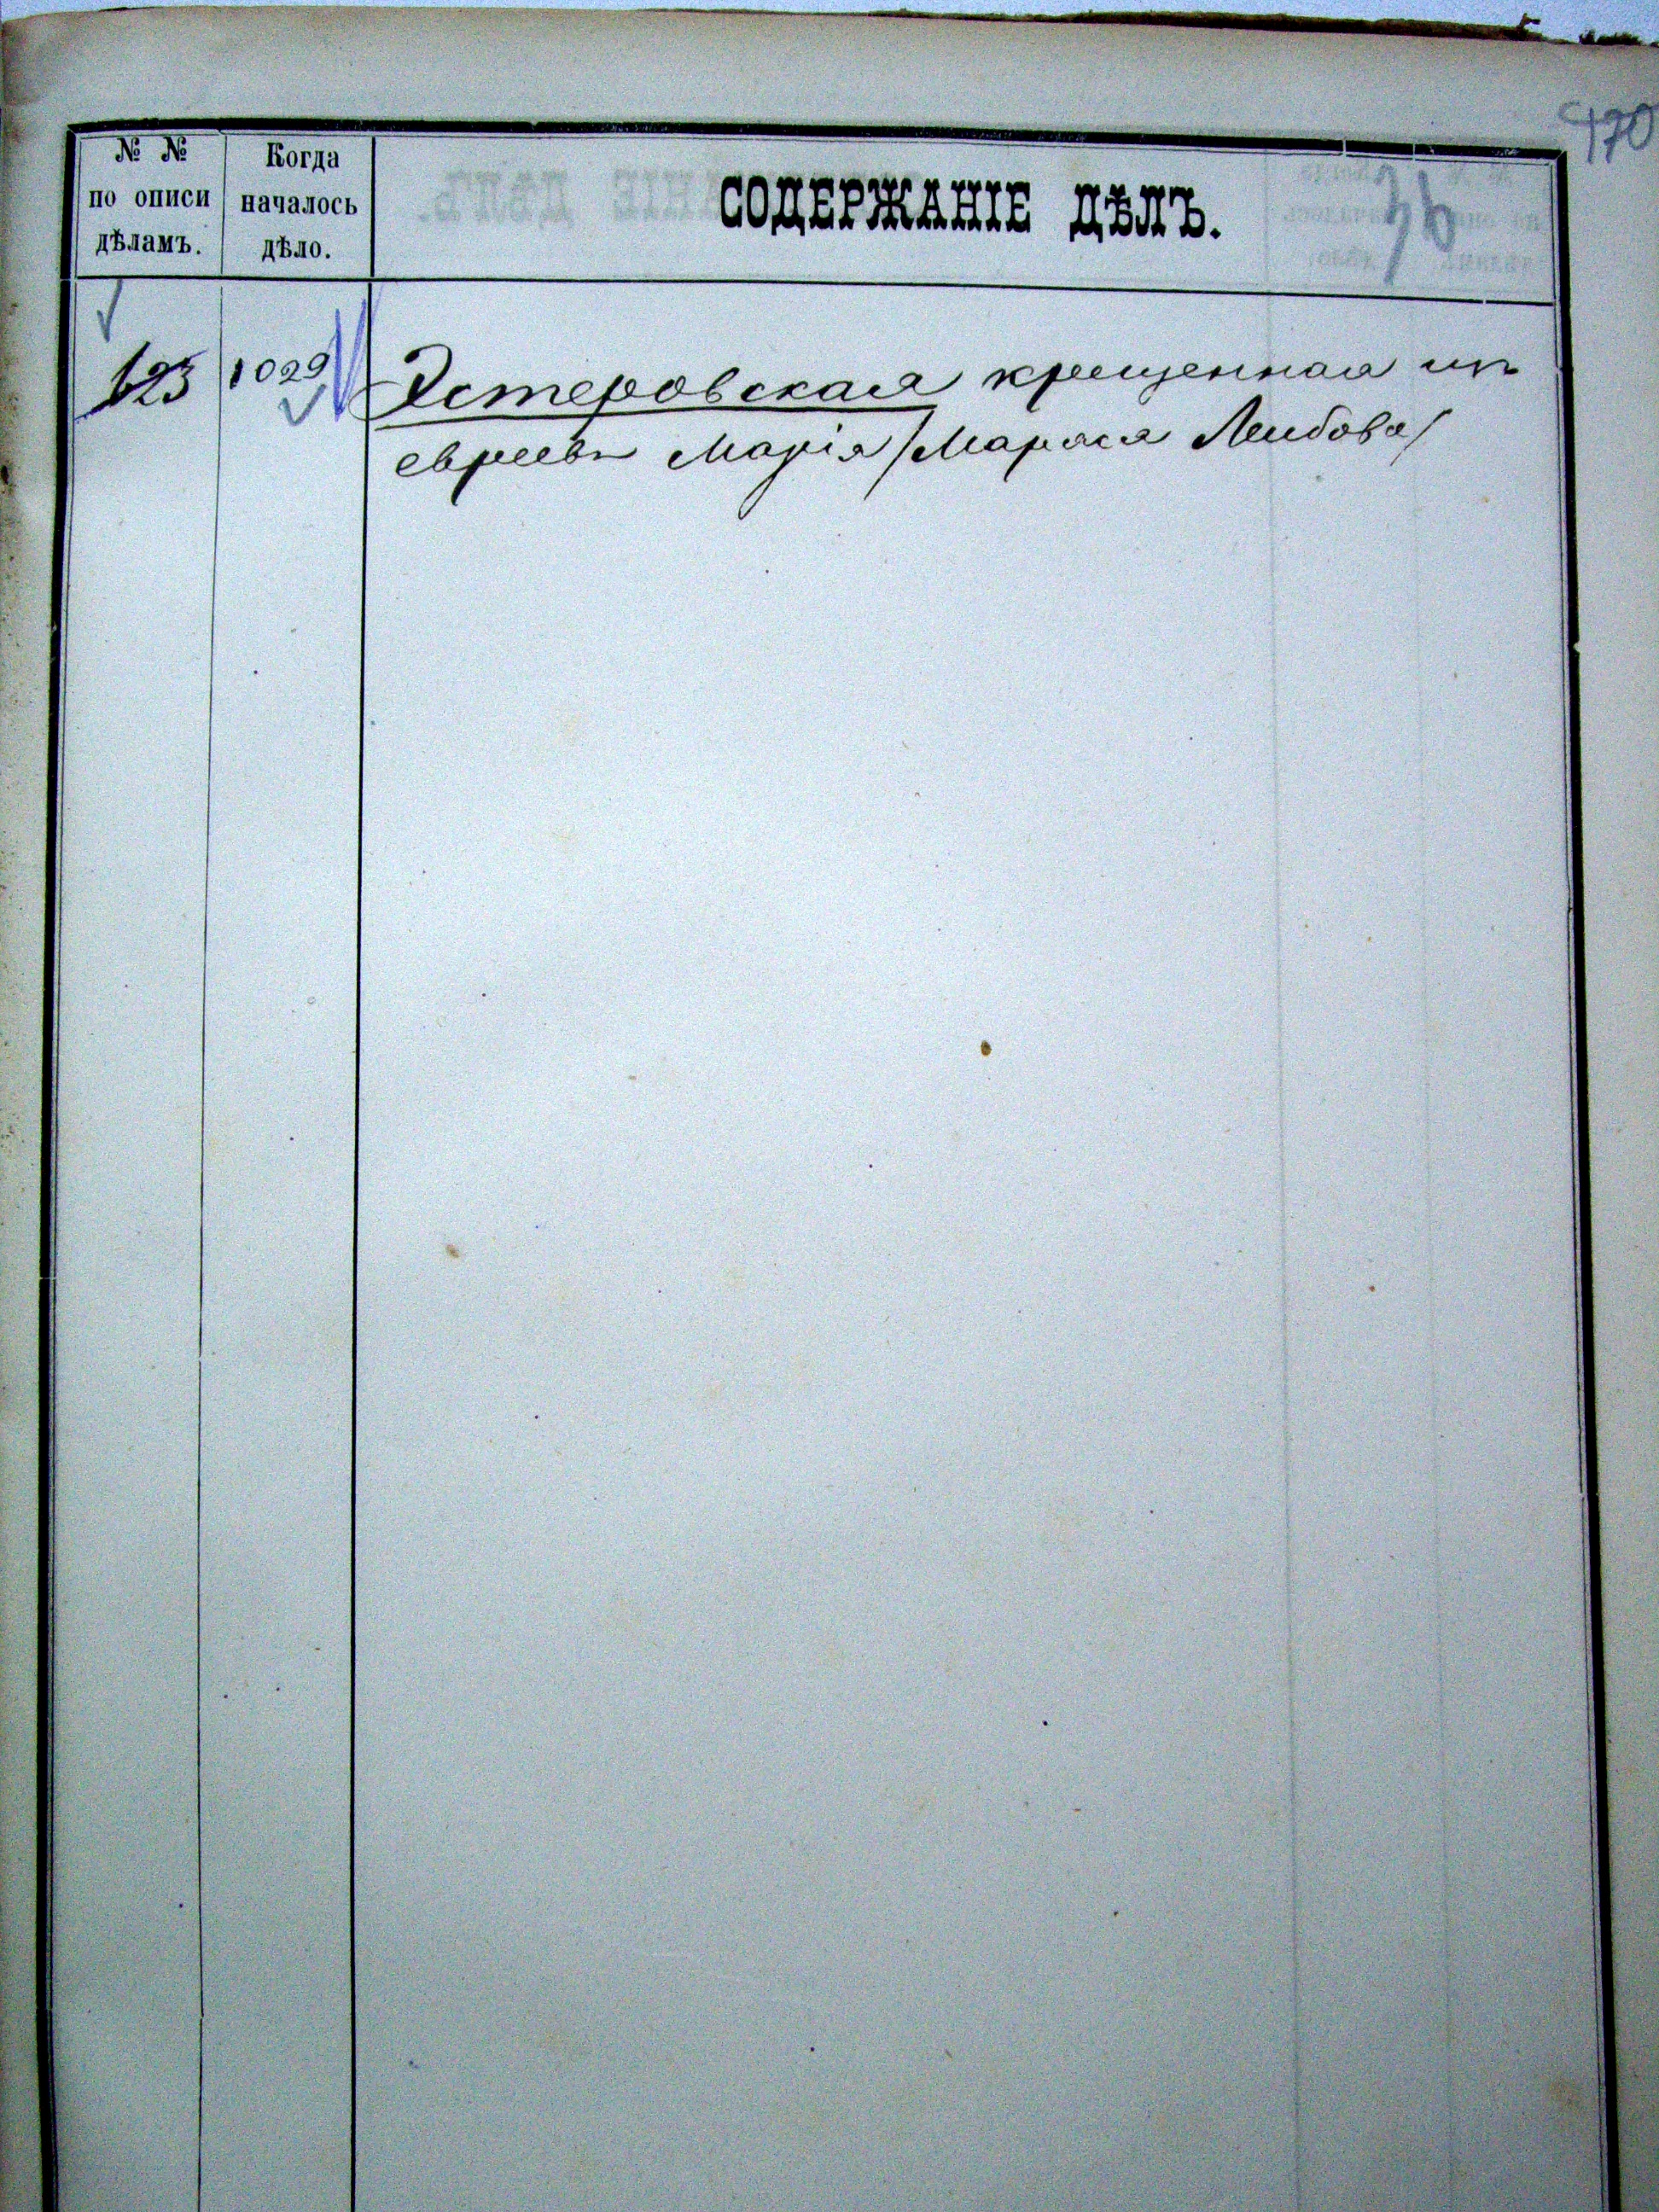 470
№ №
по описи
дѣламъ.
Когда
началось
дѣло.
СОДЕРЖАНІЕ ДѢЛЪ.
123 1029 Эстеровская крещенная изъ
евреевъ Марія /Марася Лейбова/